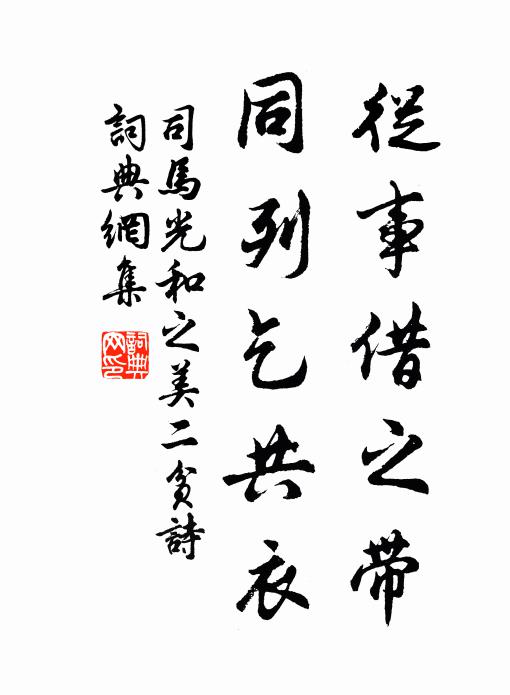 從事借之帶
同列乞共衣
司馬光和之美二貧詩
詞典網集
詞典網印